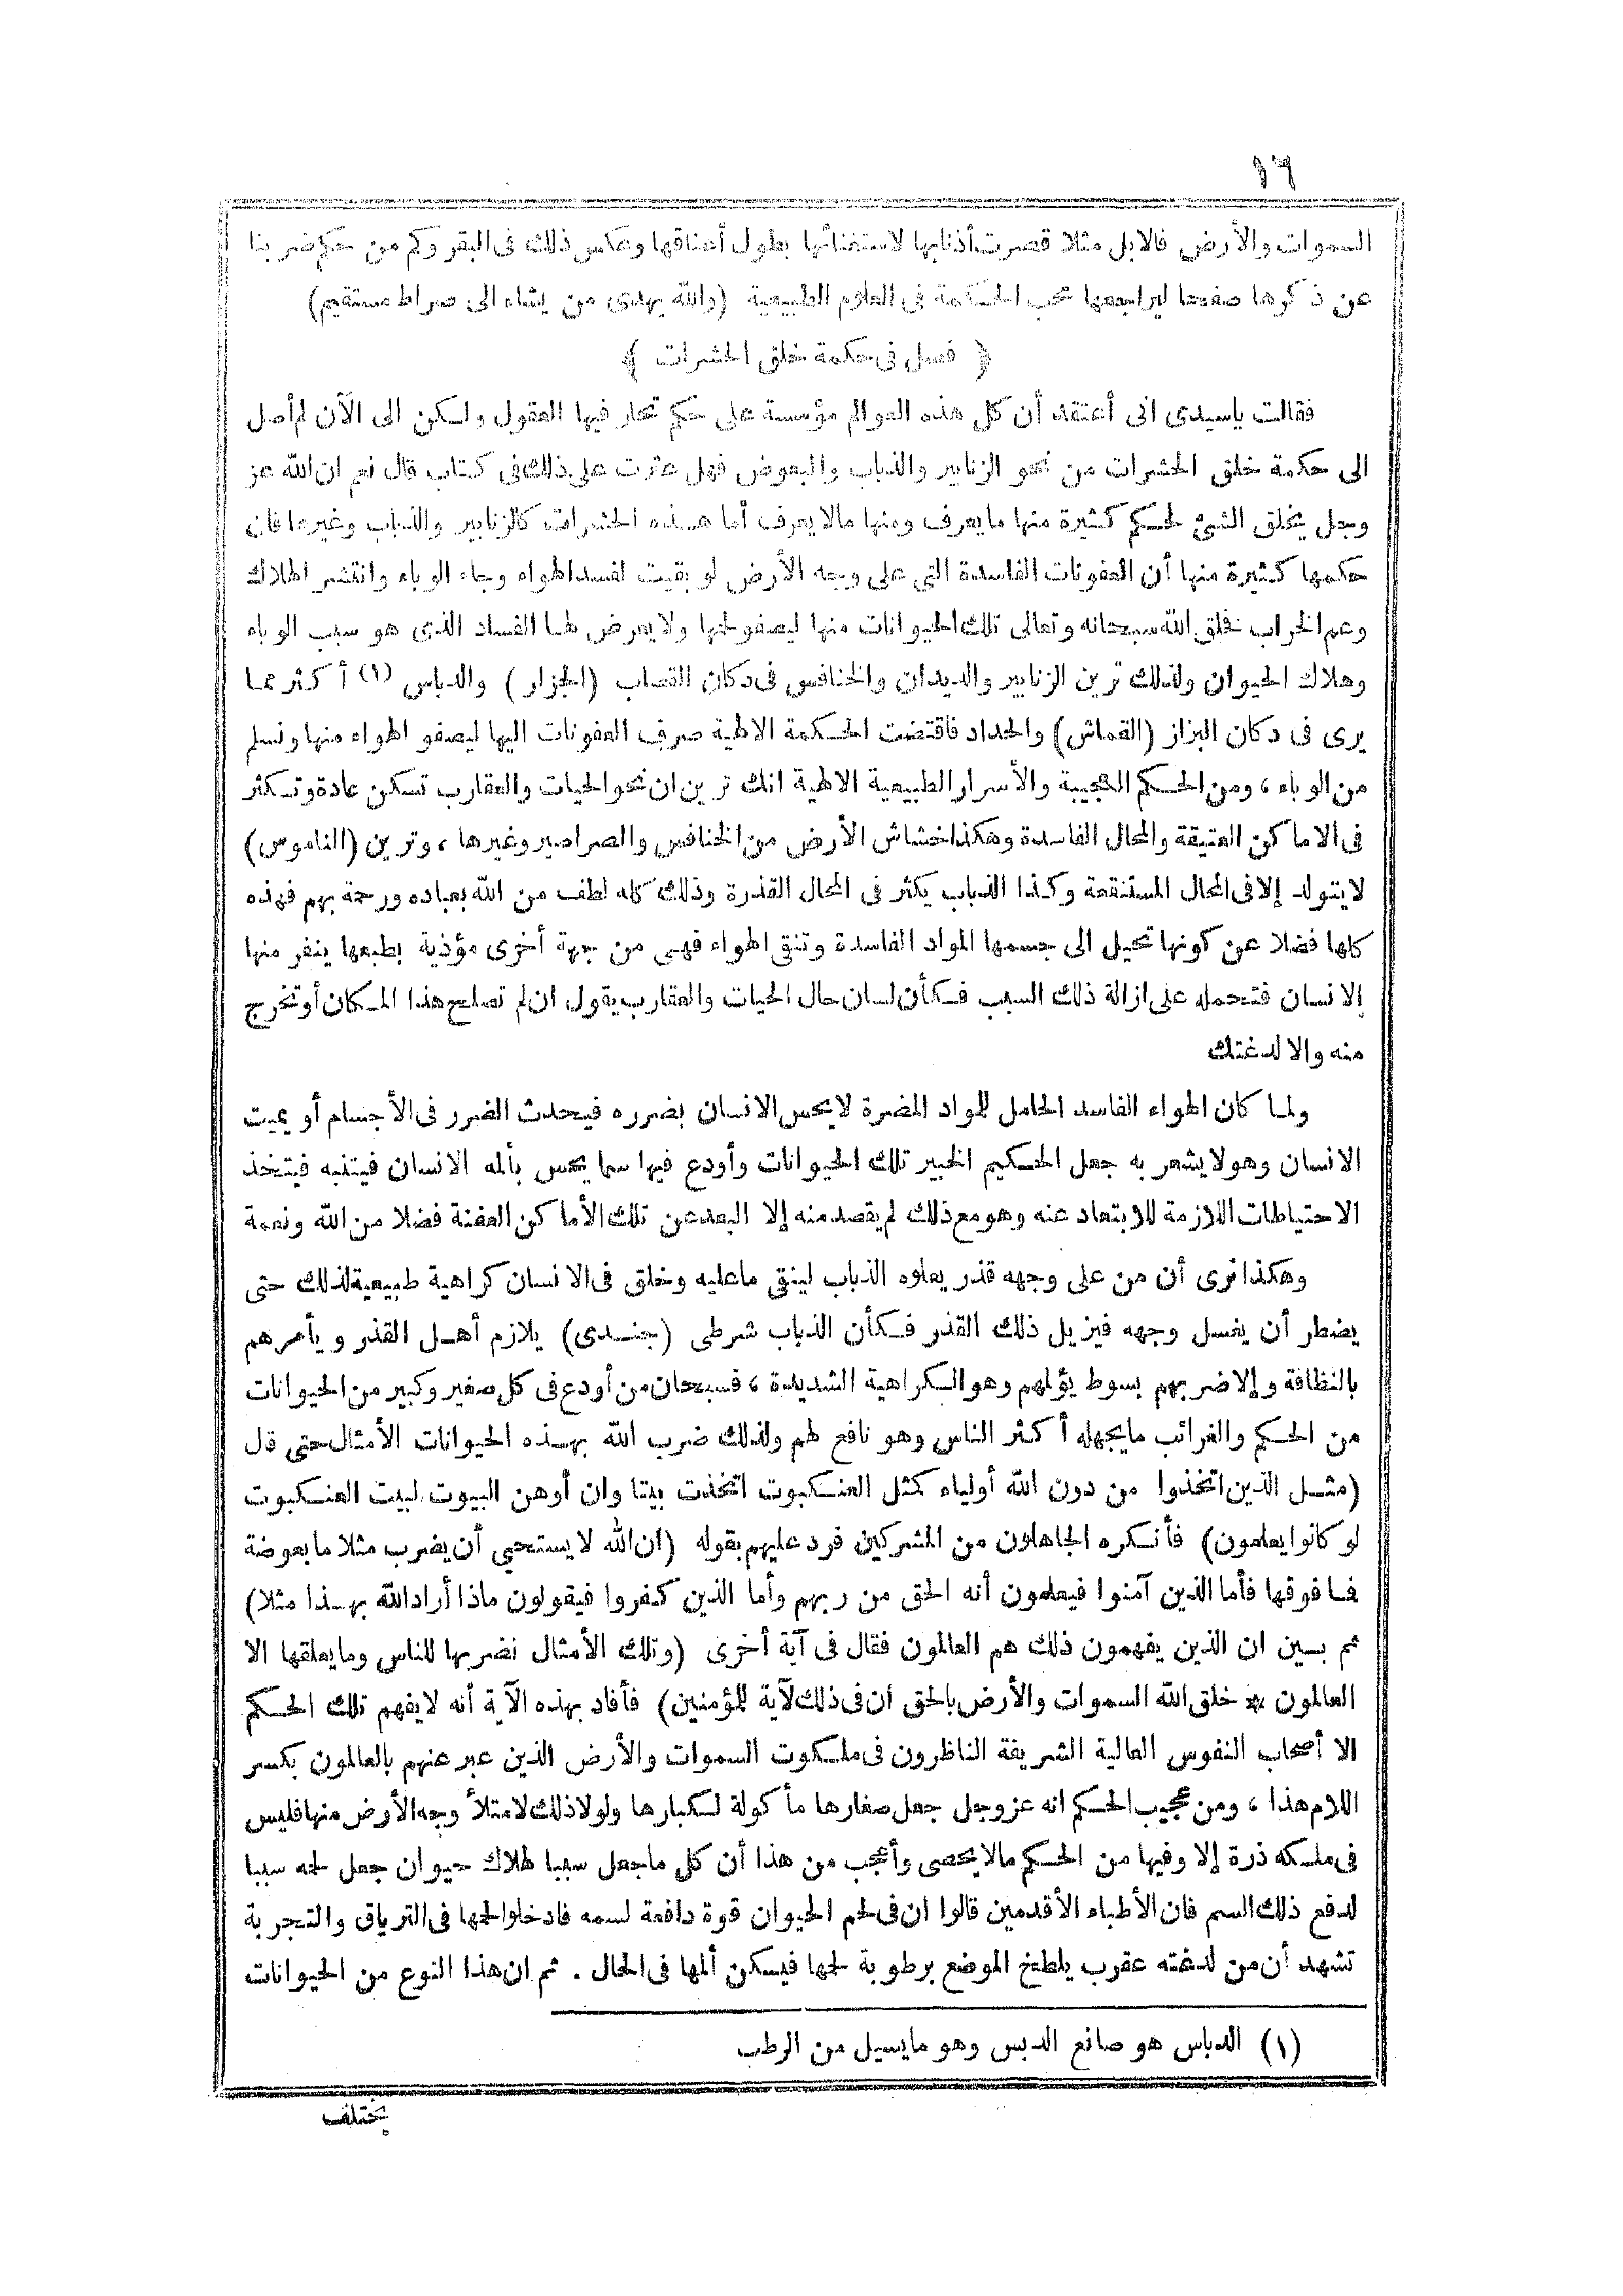 ١٦
السموات والأرض فالابل مثلا قصرت أذنابها لاستغنائها بطول أعناقها وعكس ذلك فى البقر وكم من حكم ضربنا
عن ذكرها صفحا ليراجعها محب الحكمة فى العلوم الطبيعية (والله يهدى من يشاء الى صراط مستقيم)
﴿ فصل فى حكمة خلق الحشرات ﴾
فقالت ياسيدى انى أعتقد أن كل هذه العوالم مؤسسة على حكم تحار فيها العقول ولكن الى الآن لم أصل
الى حكمة خلق الحشرات من نحو الزنابير والذباب والبعوض فهل عثرت على ذلك فى كتاب قال نعم ان الله عز
وجل يخلق الشئ لحكم كثيرة منها مايعرف ومنها مالايعرف أما هذه الحشرات كالزنابير والذباب وغيرها فان
حكمها كثيرة منها أن العفونات الفاسدة التى على وجه الأرض لو بقيت لفسد الهواء وجاء الوباء وانتشر الهلاك
وعم الخراب فخلق الله سبحانه وتعالى تلك الحيوانات منها ليصفو لجها ولايعرض لها الفساد الذى هو سبب الوباء
وهلاك الحيوان ولذلك ترين الزنابير والديدان والخنافس فى دكان القصاب (الجزار) والدباس (١) أكثر مما
يرى فى دكان البزاز (القماش) والحداد فاقتضت الحكمة الالهية صرف العفونات اليها ليصفو الهواء منها ونسلم
من الوباء ، ومن الحكم العجيبة والأسرار الطبيعية الالهية انك ترين ان نحو الحيات والعقارب تسكن عادة وتكثر
فى الاماكن العتيقة والمحال الفاسدة وهكذا خشاش الأرض من الخنافس والصراصير وغيرها ، وترين (الناموس)
لايتولد إلا فى المحال المستنقعة وكذا الذباب يكثر فى المحال القذرة وذلك كله لطف من الله بعباده ورحمة بهم فهذه
كلها فضلا عن كونها تحيل الى جسمها المواد الفاسدة وتنقى الهواء فهى من جهة أخرى مؤذية بطبعها ينفر منها
الانسان فتحمله على ازالة ذلك السبب فكأن لسان حال الحيات والعقارب يقول ان لم تصلح هذا المكان أو تخرج
منه والا لدغتك
ولما كان الهواء الفاسد الحامل للمواد المضرة لايحس الانسان بضرره فيحدث الضرر فى الأجسام أو يميت
الانسان وهو لايشعر به جعل الحكيم الخبير تلك الحيوانات وأودع فيها سما يحس بألمه الانسان فيتنبه فيتخذ
الاحتياطات اللازمة للابتعاد عنه وهو مع ذلك لم يقصد منه إلا البعد عن تلك الأماكن العفنة فضلا من الله ونعمة
وهكذا نرى أن من على وجهه قذر يعلوه الذباب لينقى ماعليه وخلق فى الانسان كراهية طبيعية لذلك حتى
يضطر أن يغسل وجهه فيزيل ذلك القذر فكأن الذباب شرطى (جندى) يلازم أهل القذر ويأمرهم
بالنظافة وإلا ضربهم بسوط يؤلمهم وهو الكراهية الشديدة ، فسبحان من أودع فى كل صغير وكبير من الحيوانات
من الحكم والغرائب مايجهله أكثر الناس وهو نافع لهم ولذلك ضرب الله بهذه الحيوانات الأمثال حتى قال
(مثل الذين اتخذوا من دون الله أولياء كمثل العنكبوت اتخذت بيتا وان أوهن البيوت لبيت العنكبوت
لو كانوا يعلمون) فأنكره الجاهلون من المشركين فرد عليهم بقوله (ان الله لايستحيي أن يضرب مثلا مابعوضة
فما فوقها فأما الذين آمنوا فيعلمون أنه الحق من ربهم وأما الذين كفروا فيقولون ماذا أراد الله بهذا مثلا)
ثم بين ان الذين يفهمون ذلك هم العالمون فقال فى آية أخرى (وتلك الأمثال نضربها للناس ومايعلقها الا
العالمون * خلق الله السموات والأرض بالحق ان فى ذلك لآية للمؤمنين) فأفاد بهذه الآية أنه لايفهم تلك الحكم
الا أصحاب النفوس العالية الشريفة الناظرون فى ملكوت السموات والأرض الذين عبر عنهم بالعالمون بكسر
اللام هذا ، ومن عجيب الحكم انه عز وجل جعل صغارها مأكولة لكبارها ولولا ذلك لامتلأ وجه الأرض منها فليس
فى ملكه ذرة إلا وفيها من الحكم مالايحصى وأعجب من هذا أن كل ماجعل سببا لهلاك حيوان جعل لحمه سببا
لدفع ذلك السم فان الأطباء الأقدمين قالوا ان فى لحم الحيوان قوة دافعة لسمه فادخلوا لحمها فى الترياق والتجربة
تشهد أن من لدغته عقرب يلطخ الموضع برطوبة لحمها فيسكن ألمها فى الحال . ثم ان هذا النوع من الحيوانات
(١) الدباس هو صانع الدبس وهو مايسيل من الرطب
يختلف